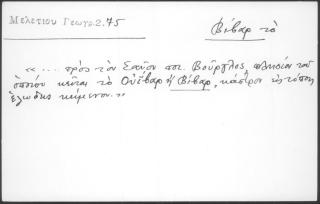 Μελετίου Γεωγρ. 2. 75
Βίβαρ τὸ
«.... πρὸς τὸν Σαῦον ποτ. Βούργλος, πλησίον τοῦ
ὁποίου κεῖται τὸ Οὐΐβαρ ἢ Βίβαρ, κάστρον εἰς τόπον
ἑλώδη κείμενον.»